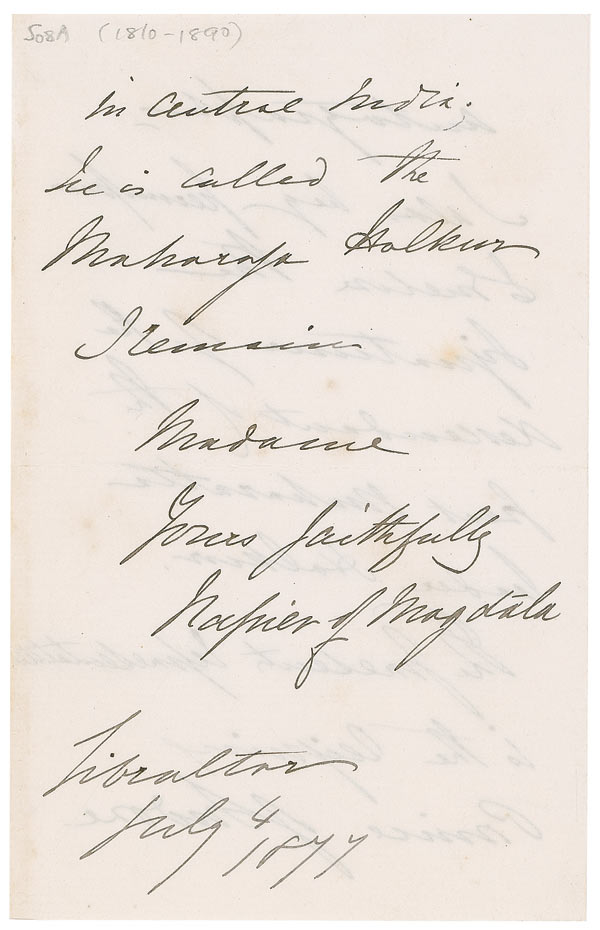 508A (1810-1890)
in Central India;
he is called the
Maharaja Holkur
I remain
Madame
Yours faithfully
Napier of Magdāla
Gibraltar
July 4
1877